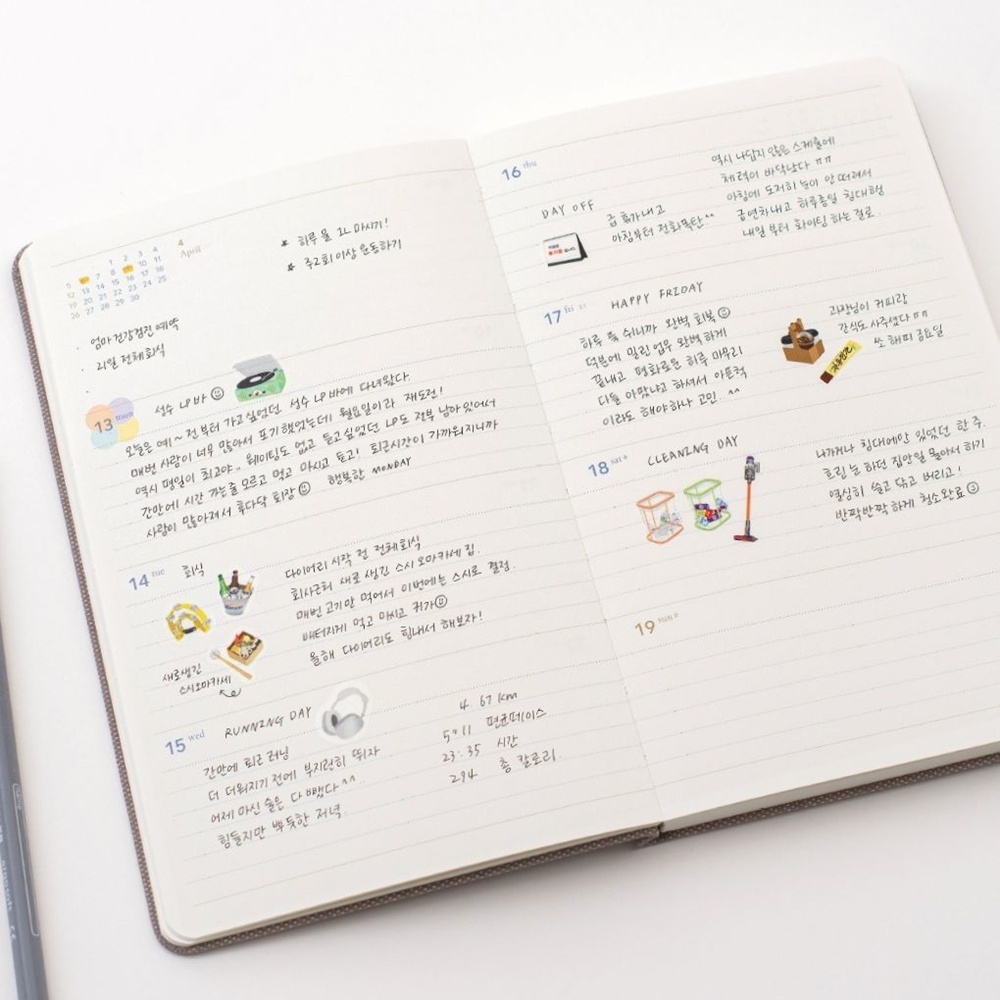 4
April
1 2 3 4
5 7 8 10 11
12 13 14 15 16 17 18
19 20 21 22 23 24 25
26 27 28 29 30
* 하루 물 2L 마시기!
* 주2회 이상 운동하기
· 엄마 건강검진 예약
· 21일 전체회식
·
13 mon
성수 LP바
오늘은 예~전부터 가고싶었던 성수 LP바에 다녀왔다.
매번 사람이 너무 많아서 포기했었는데 월요일이라 재도전!
역시 평일이 최고야.. 웨이팅도 없고 듣고싶었던 LP도 전부 남아있어서
간만에 시간 가는줄 모르고 먹고 마시고 듣고! 퇴근시간이 가까워지니까
사람이 많아져서 후다닥 퇴장 행복한 MONDAY
14 tue
회식
다이어리 시작 전 전체회식
회사근처 새로 생긴 스시오마카세집.
매번 고기만 먹어서 이번에는 스시로 결정.
배터지게 먹고 마시고 귀가
올해 다이어리도 힘내서 해보자!
새로생긴
스시오마카세
15 wed
RUNNING DAY
간만에 퇴근 러닝
더 더워지기 전에 부지런히 뛰자
어제 마신 술은 다 뺐다^^
힘들지만 뿌듯한 저녁.
4.67km
5'11 평균페이스
23:35 시간
294 총 칼로리.
16 thu
DAY OFF
급 휴가내고
아침부터 전화폭탄^^
역시 나답지 않은 스케줄에
체력이 바닥났다 ㅠㅠ
아침에 도저히 눈이 안 떠져서
급연차내고 하루종일 침대행
내일부터 화이팅 하는 걸로.
17 fri
HAPPY FRIDAY
하루 푹 쉬니까 완벽 회복
덕분에 밀린 업무 완벽하게
끝내고 평화로운 하루 마무리
다들 아팠냐고 하셔서 아픈척
이라도 해야하나 고민.. ^^
과장님이 커피랑
간식도 사주셨다 ㅠㅠ
쏘 해피 금요일
18 sat
CLEANING DAY
나가거나 침대에만 있었던 한 주.
흐린 눈 하던 집안일 몰아서 하기
열심히 쓸고 닦고 버리고!
반짝반짝하게 청소완료
19 sun